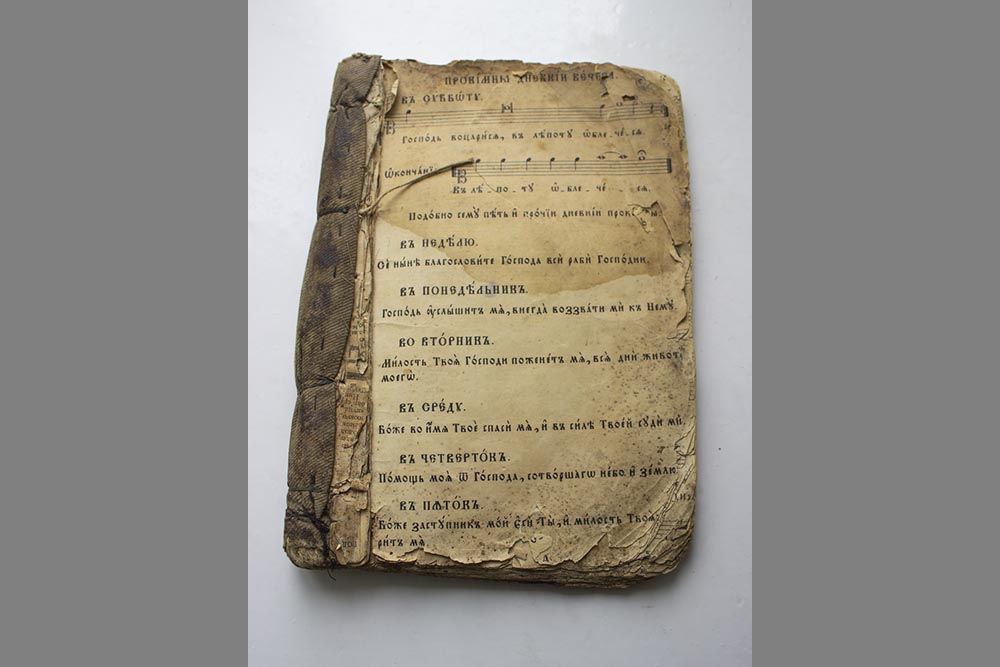 ПРОКІ́МНЫ ДНЕВНІ́И ВЕ́ЧЕРА.
ВЪ СУББѠ́ТУ.
Госпо́дь воцари́сѧ, въ лѣ́поту ѡ҆бле - че́ - сѧ.
Ѡ҆конча́нїе
Въ лѣ́ - по - ту ѡ҆б - ле - че́ - сѧ.
Подо́бно сему̀ пѣ́ть и҆ про́чїи дневні́и
ВЪ НЕДѢ́ЛЮ.
Сѐ ны́нѣ благослови́те Го́спода всѝ рабѝ Госпо́дни.
ВЪ ПОНЕДѢ́ЛЬНИКЪ.
Госпо́дь ᲂу҆слы́шитъ мѧ̀, внегда̀ воззва́ти мѝ къ Нему̀.
ВО ВТО́РНИКЪ.
Ми́лость Твоѧ̀ Го́споди пожене́тъ мѧ̀, всѧ̀ днѝ живот
моегѡ̀.
ВЪ СРЕ́ДУ.
Бо́же во и҆́мѧ Твоѐ спасѝ мѧ̀, и҆ въ си́лѣ Твое́й судѝ мѝ.
ВЪ ЧЕТВЕРТО́КЪ.
По́мощь моѧ̀ ѿ Го́спода, сотво́ршагѡ не́бо и҆ зе́млю.
ВЪ ПѦТО́КЪ.
Бо́же засту́пникъ мо́й є҆сѝ Ты̀, и҆ ми́лость Твоѧ̀
ри́тъ мѧ̀.